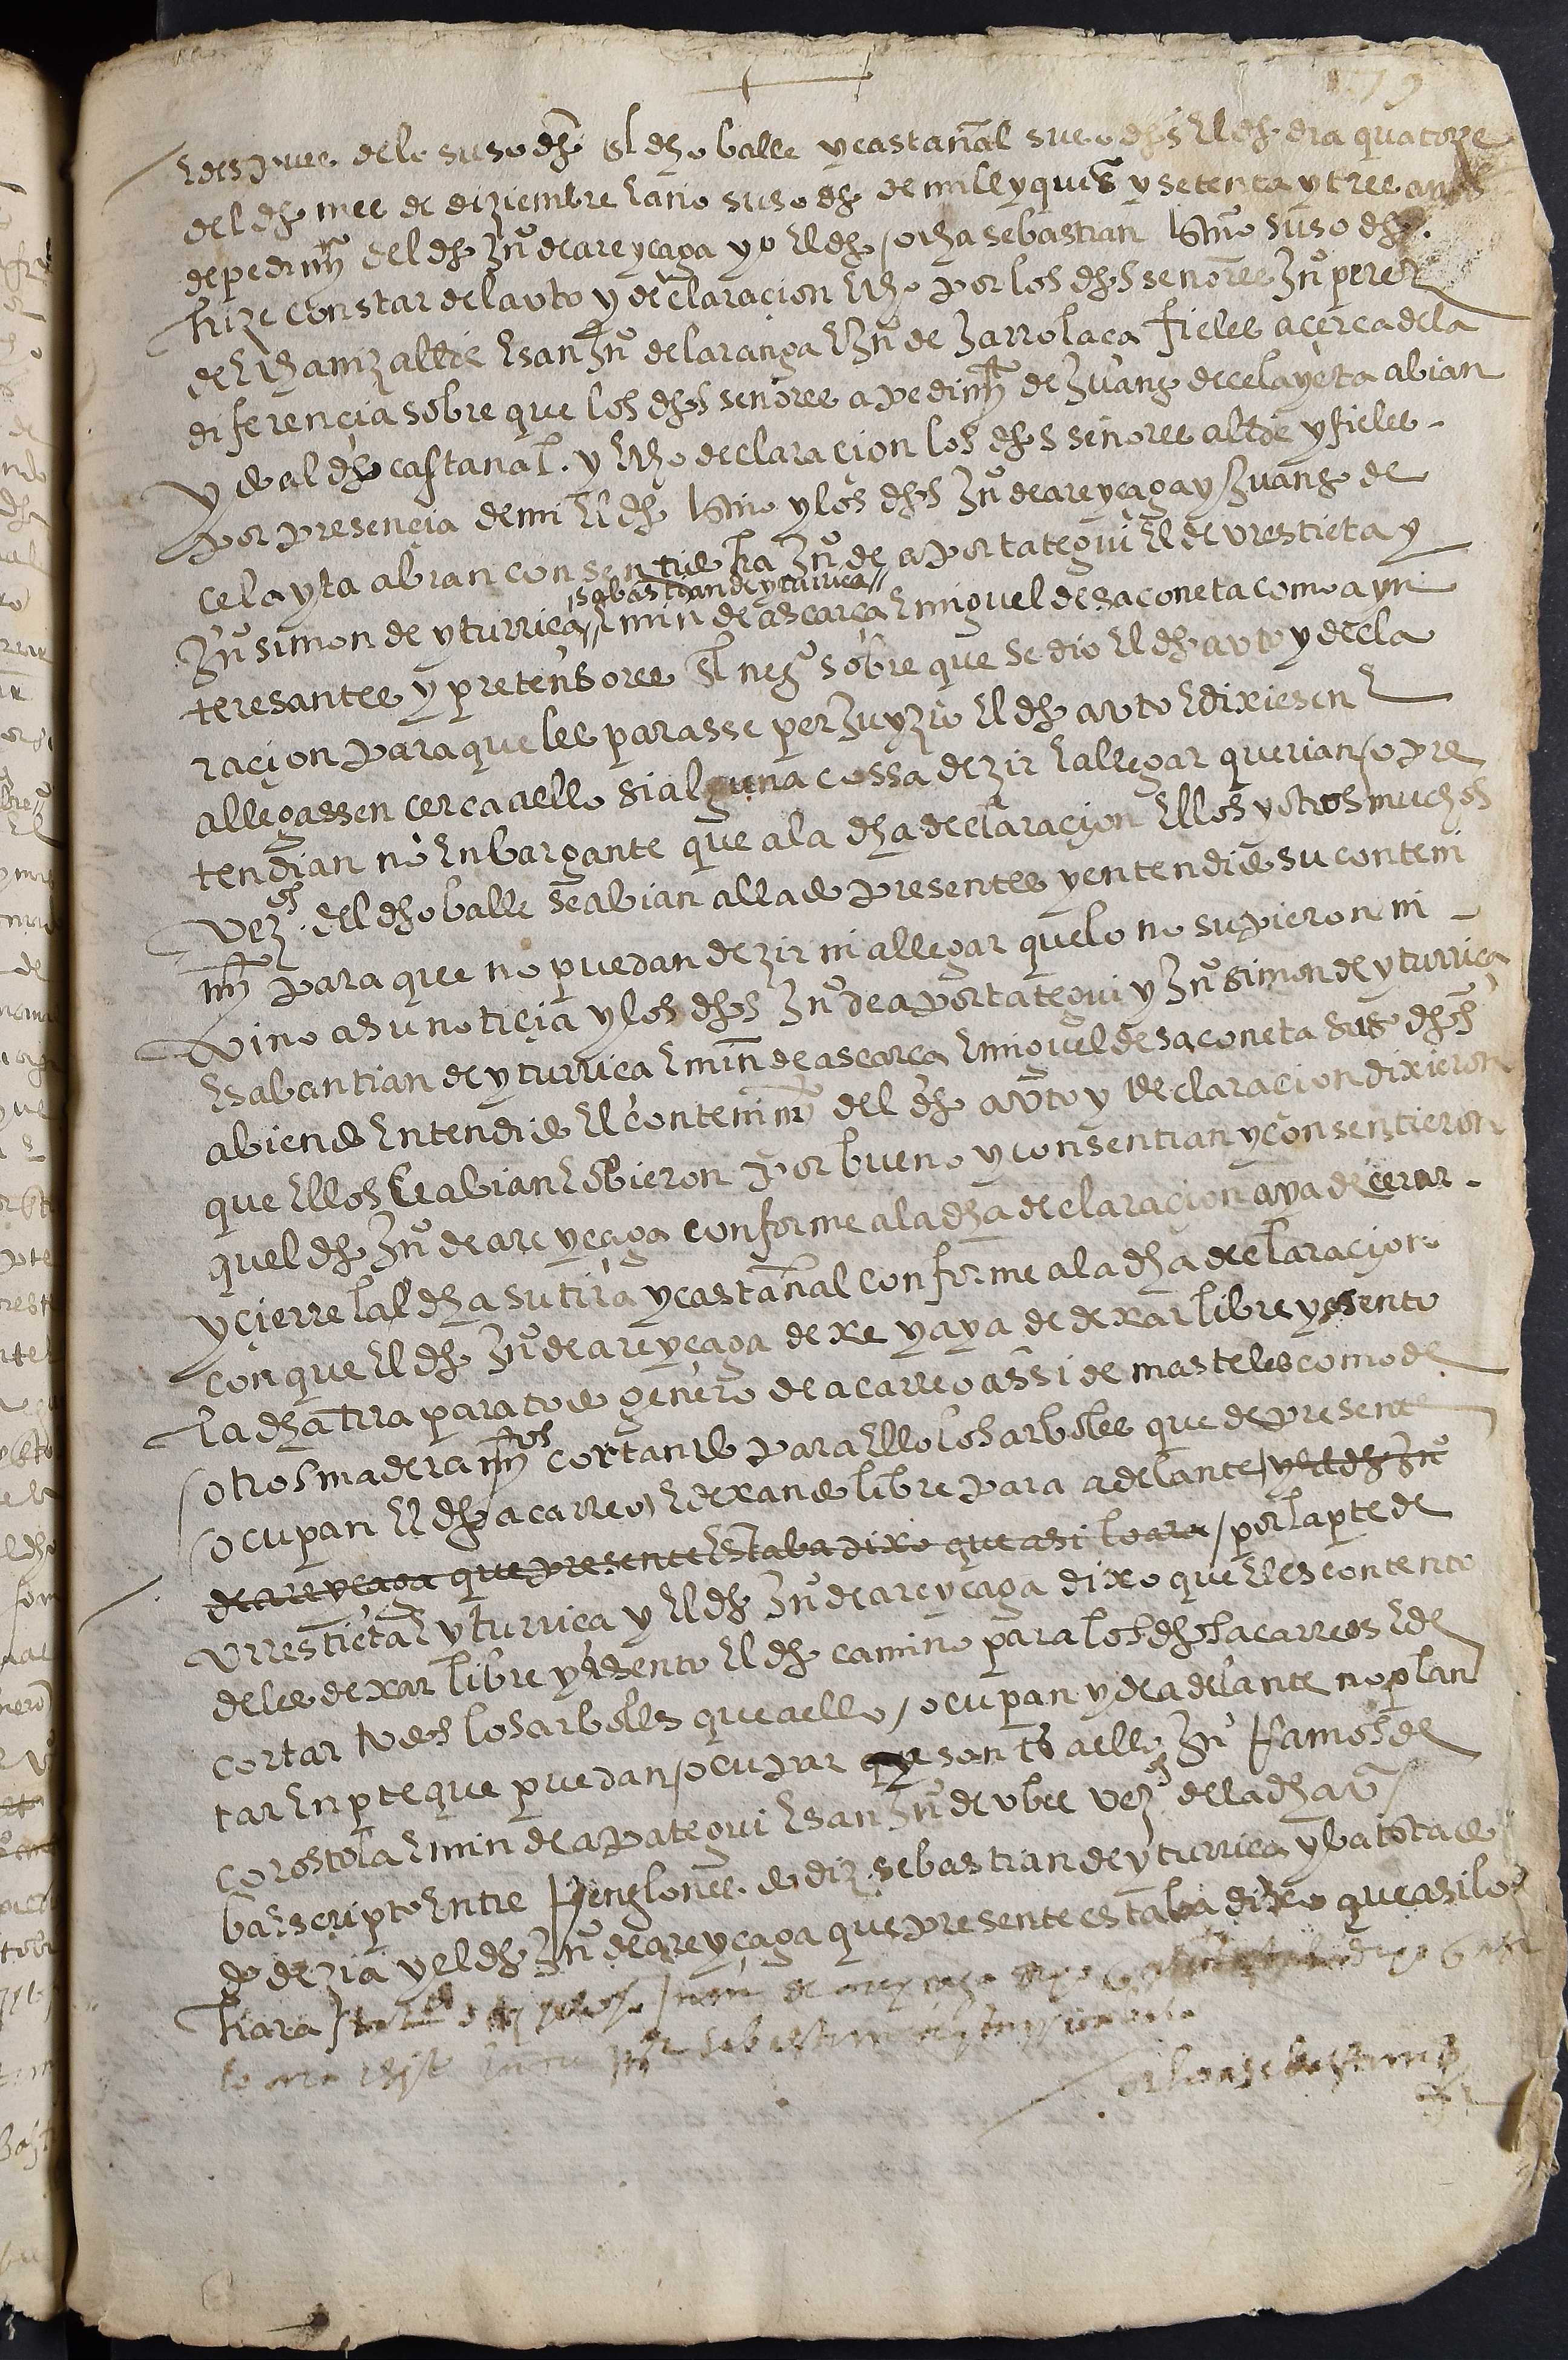 E despues de lo suso dho en el dho balle y castañal suso dhos el dho dia quatorze
del dho mes de diziembre e año suso dho de mill y quis y setenta y tres años
de pedimyto del dho Juo de areyçaga yo el dho ochoa sebastian scriuo suso dho
hize constar del auto y declaracion hecho por los dhos señores Juo perez
de allde e san Juo de laranga e Juo de Jarrolaça fieles açerca de la
diferençia sobre que los dhos señores a pedimyto de Juango de celayeta abian
ydo al dho castanal. y hecho declaraçion los dhos señores allde y fieles
por presençia de mi el dho scriuo y los dhos Juo de areyçaga y Juango de
celayta abian consentido ha Juo de aportategui el de vrestieta y
Juo simon de yturriça // sabastian de yturriça // e min de ascarça e miguel de saconeta como a yn
teresantes y pretensores en el nego sobre que se dio el dho auto y decla
raçion para que les parasse perjuyzio el dho auto e dixiesen e
allegassen cerca aello si alguna cossa dezir e allegar querian o pre
tendian no enbargante que a la dha declaraçion ellos y otros muchos
vezos del dho balle se abian allado presentes y entendido su conteni
myto para que no puedan dezir ni allegar quelo no supieron ni
vino a su notiçia y los dhos Juo de aportategui y Juo simon de yturriça
e sabantian de yturriça e min de ascarça e miguel de saconeta suso dhos
abiendo entendido el contenimyto del dho auto y declaracion dixieron
que ellos le abian e obieron por bueno y consentian y consentieron
quel dho Juo de areyçaga conforme a la dha declaraçion aya de cerrar
y çierre la dha su tira y castañal conforme a la dha declaraçion
con que el dho Juo de areyçaga dexe y aya de dexar libre y esento
la dha tira para todo genero de acarreo assi de masteles como de
otros maderamytos cortando para ello los arboles que de presente
ocupan el dho acarreo, e dexando libre para adelante / y el dho Juo
de areyçaga que presente estaba dixo que asi loara / por la parte de
vrrestieta e yturriça y el dho Juo de areyçaga dixo que el es contento
de les dexar libre y esento el dho camino para los dhos acarreos e de
cortar todos los arboles que aello ocupan y de adelante no plan
tar en parte que puedan ocupar que son tos aello Juo Ramos de
corostola e min de apategui e san Juo de vbee vezos de la dha va
ba escripto entre Renglones do diz. sebastian de yturriça y ba testado
do dezia y el dho Juo de areyçaga que presente estaba dixo que asi lo
hara
ochoa sebastian